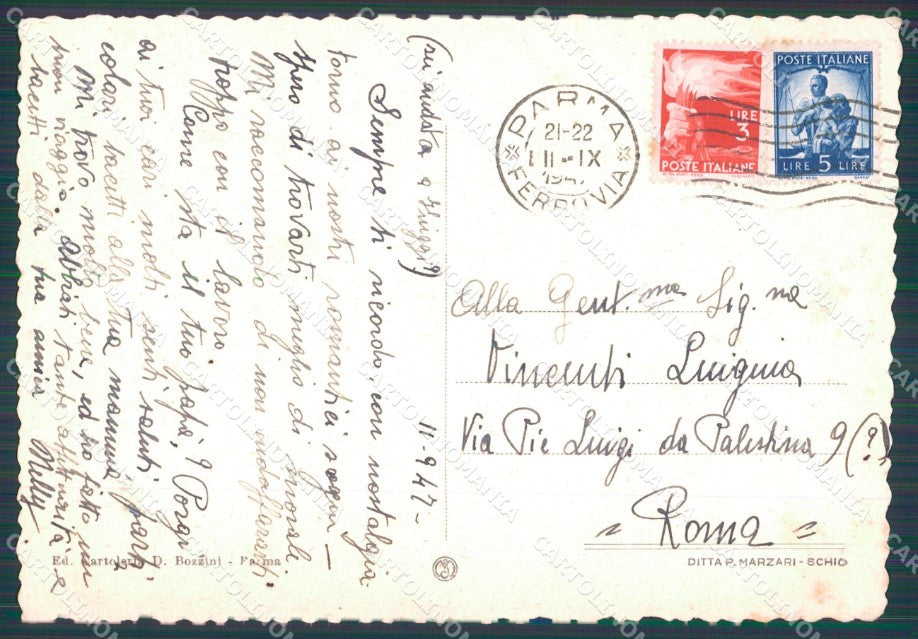 11-947-
(sei andata a Chiggi?)
Sempre ti ricordo, con nostalgia
torno ai nostri romantici sogni —
spero di trovarti meglio di morale.
Mi raccomando di non
troppo con il lavoro.
Come sta il tuo papà? Porgi
ai tuoi cari molti, sentiti saluti parti
colari baci alla tua mamma.
Mi trovo molto bene, ed ho fatto un
buon viaggio. Abbiati tante affettuosità e
bacetti dalla tua amica Nelly
Ed. Cartoleria D. Bozzini - Parma
PARMA
21-22
11-IX
1947
FERROVIA
LIRE
3
POSTE ITALIANE
POSTE ITALIANE
LIRE 5 LIRE
Alla Gent.ma Sig.na
Vincenti Luigina
Via Pie Luigi da Palestrina 9 (?)
= Roma =
DITTA P. MARZARI - SCHIO
CARTOLINOMANIA